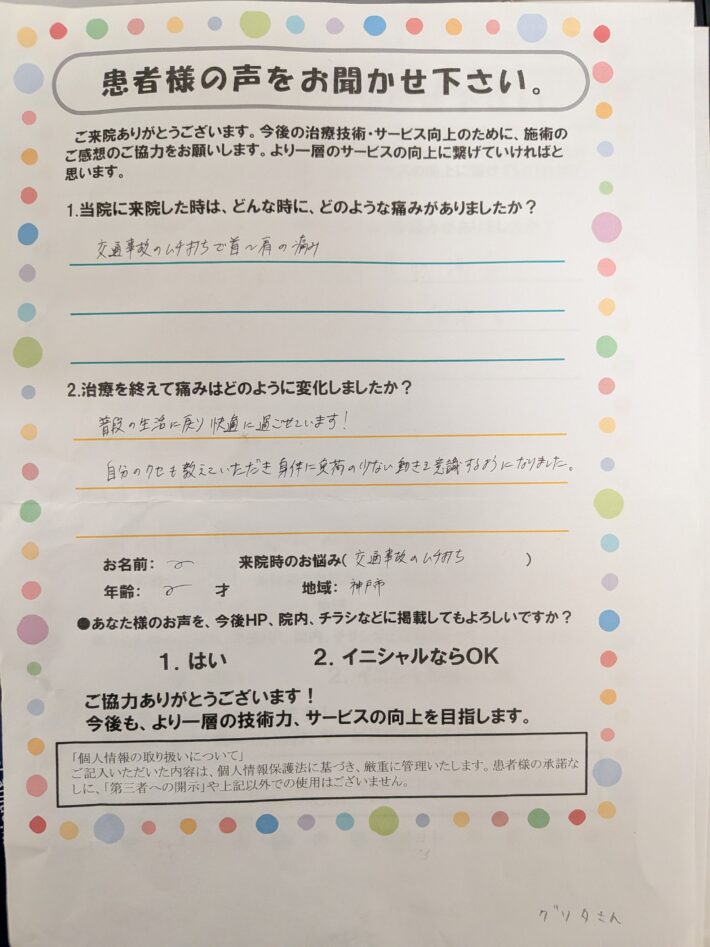 患者様の声をお聞かせ下さい。
ご来院ありがとうございます。今後の治療技術・サービス向上のために、施術の
ご感想のご協力をお願いします。より一層のサービスの向上に繋げていければと
思います。
1.当院に来院した時は、どんな時に、どのような痛みがありましたか？
交通事故のムチ打ちで首〜肩の痛み
2.治療を終えて痛みはどのように変化しましたか？
普段の生活に戻り快適に過ごせています！
自分のクセも教えていただき身体に負荷の少ない動きを意識するようになりました。
お名前： 来院時のお悩み(交通事故のムチ打ち)
年齢： 才 地域：神戸市
●あなた様のお声を、今後HP、院内、チラシなどに掲載してもよろしいですか？
1. はい 2. イニシャルならOK
ご協力ありがとうございます！
今後も、より一層の技術力、サービスの向上を目指します。
「個人情報の取り扱いについて」
ご記入いただいた内容は、個人情報保護法に基づき、厳重に管理いたします。患者様の承諾な
しに、「第三者への開示」や上記以外での使用はございません。